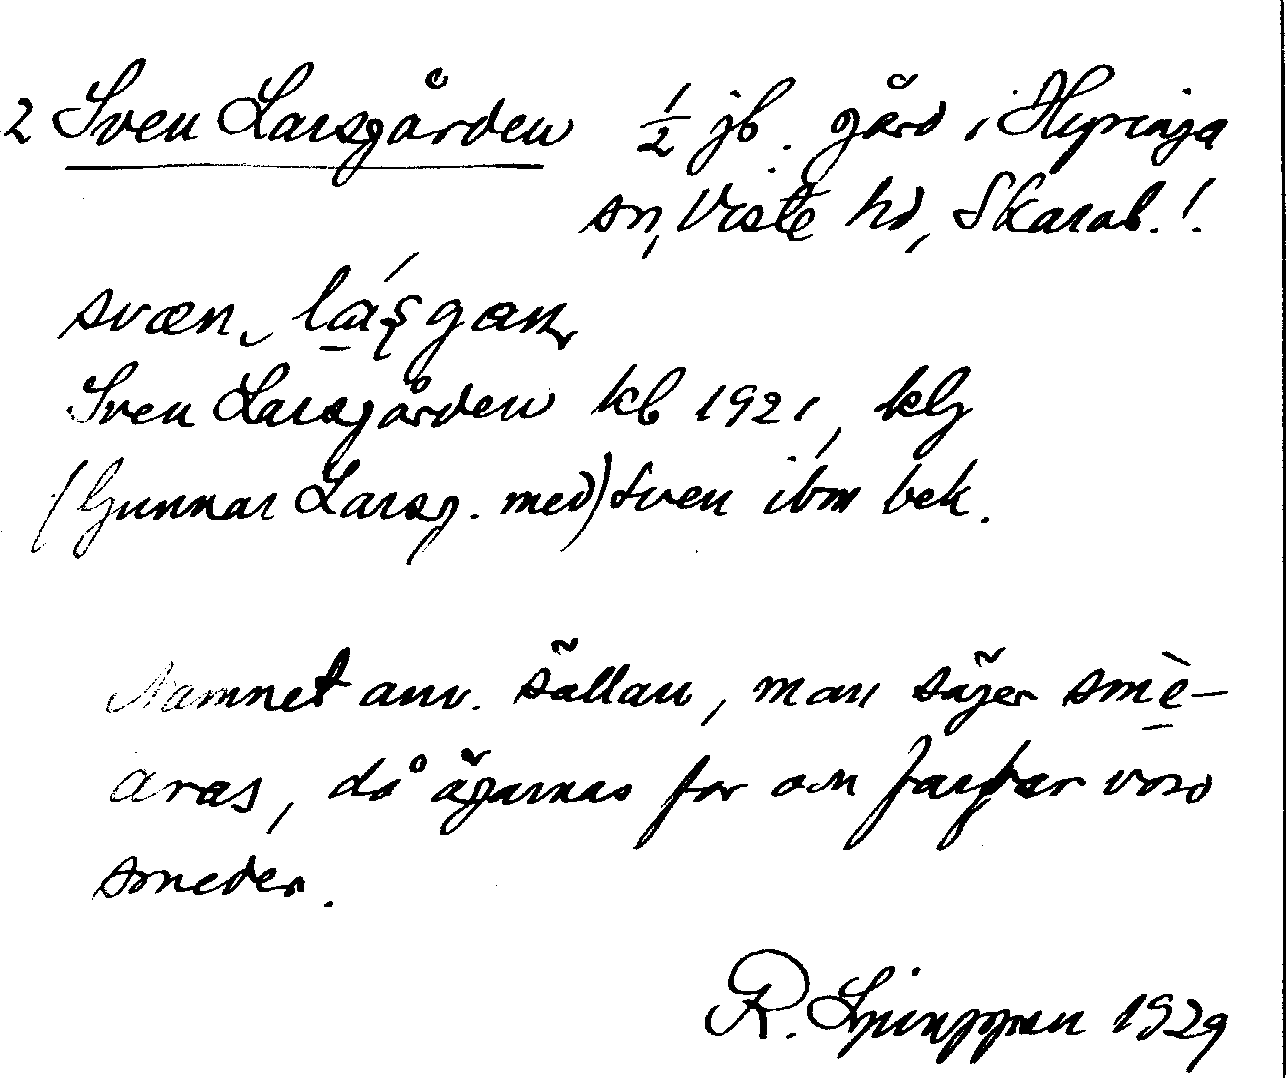 2 Sven Larsgården ½ jb. gård i Hyringa
sn, Viste hd, Skarab. l.
svæn, 
Sven Larsgården kb 1921, klg
(Gunnar Larsg. med) Sven ibm bek.
Namnet anv. sällan, man säger smè-
aras, då ägarnas far och farfar voro
smeder.
R. Ljunggren 1929